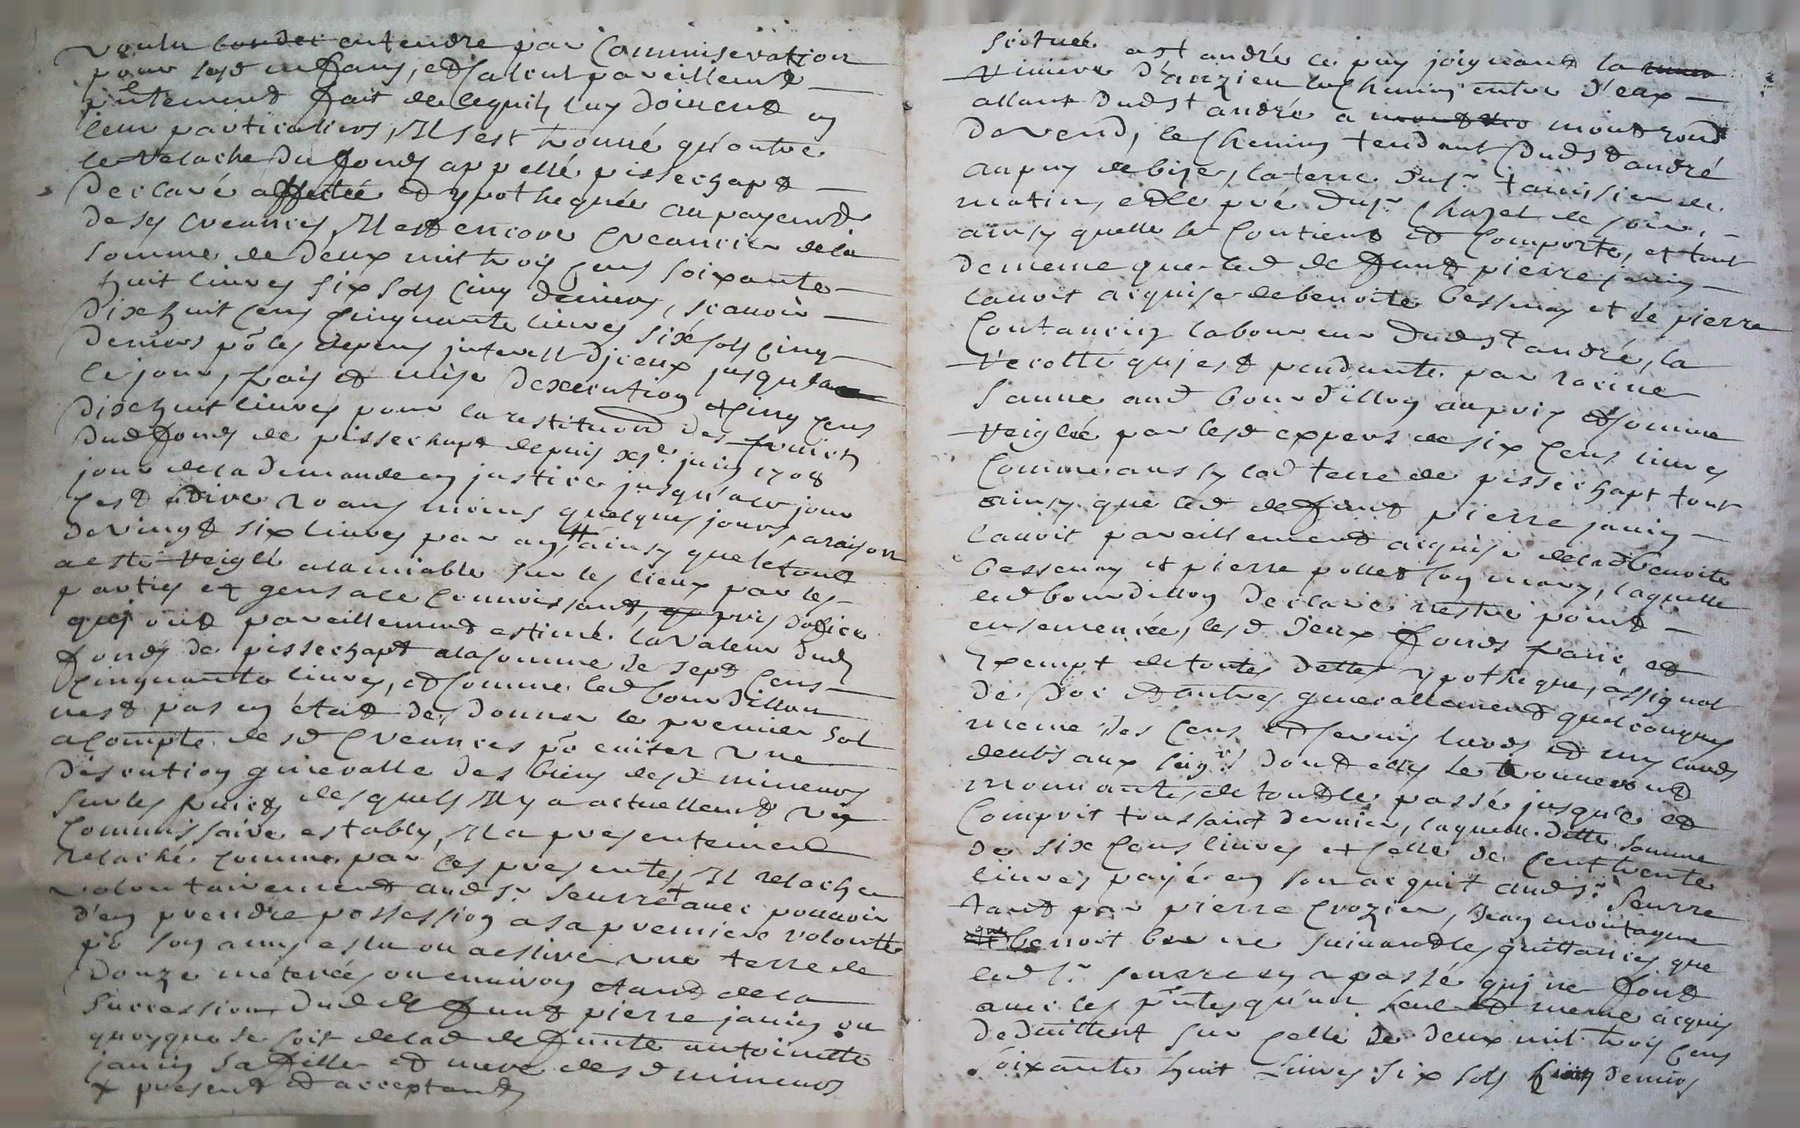 voulu entendre par Commiseration
pour lesd enfans, et
p^ntement fait de lequil luy doivent en
leur particuliers, Il s'est trouvé qu'outre
le relache du fonds appellé pissechapt
declaré affecté et ypothequée au payement
de ses creances, Il est encore creancier de la
somme de deux mil trois cens soixante
huit livres six sols cinq deniers, scavoir
dixehuit cens cinquante livres six sols cinq
deniers p^o les depens interest d'iceux jusqu'a
ce jour, frais et mise dexecution et cinq cens
dixehuit livres pour la restitution des fruicts
dud fonds de pissechapt depuis juin 1708
jour de la demande en justice jusqu'a ce jour
cest adire 20 ans moins quelques jours a raison
de vingt six livres par an, ainsy que le tout
a esté reiglé alamiable sur les lieux par les
parties et gens a ce connoissant, pris doffice
qui ont pareillement estimé la valeur dud
fonds de pissechapt a la somme de sept cens
cinquante livres, et comme led bourdillon
nest pas en état de donner le premier sol
acompte desd creances p^o eviter une
discution generalle des biens desd mineurs
sur les fruicts desquels Il y a actuellement un
Commissaire estably, Il a presentement
relaché comme par ces presentes Il relache
volontairement aud s^r seurre avec pouvoir
d'en prendre possession a sa premiere volonté
p^o son amy eslu ou aeslire une terre de
douze meterées ou environ etant de la
succession dud deffunt pierre janin ou
quoyque ce soit de lad deffunte antoinette
janin sa fille et mere desd mineurs
present et acceptant
scituée a st andré le puy joignant la
riviere d'anzieu le chemin entre d'eux
allant dud st andré a montrond
de vend, le chemin tendant dud st andré
au puy de bize, la terre du s^r
matin, et le pré du s^r chazel de soir,
ainsy quelle se contient et comporte, et tout
de meme que led deffunt pierre janin
lavoit acquise de benoite bessenay et de pierre
laboureur dud st andré, la
recolte qui est pendante par racine
sauve aud bourdillon au prix et somme
reiglée par lesd expers de six cens livres
comme aussy lad terre de pissechapt tout
ainsy que led deffunt pierre janin
lavoit pareillement acquise de lad benoite
bessenay et pierre pollet son mary, laquelle
led bourdillon declare n'estre point
ensemencée, lesd deux fonds franc et
exempt de toutes dettes ypotheques, assignat
de dot et autres generallement quelconques
meme des cens et servis laods et my laods
deubs aux seig^rs dont elles se trouveront
mouvantes de tout le passé jusqu'a et
comprit toussaint dernier, laquelle ditte somme
de six cens livres et celle de cent trente
livres payée en son acquit aud s^r seurre
tant par pierre crozier, Jean montagne
que benoit suivant les quittances que
led s^r seurre en a passé qui ne font
avec les p^ntes qu'un seul et meme acquis
deduittent sur celle de deux mil trois cens
soixante huit livres six sols cinq deniers